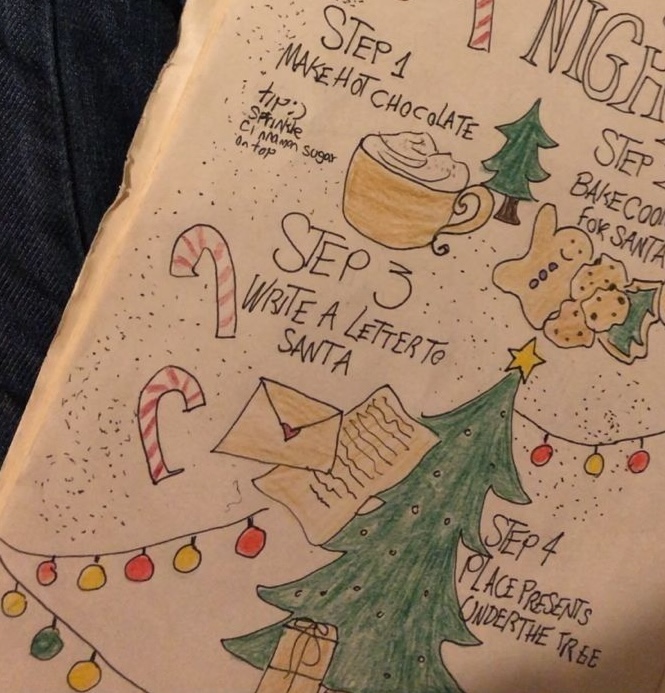 NIGH
STEP 1
MAKE HOT CHOCOLATE
tip:)
sprinkle
cinnamon sugar
on top
STEP
BAKE COO
FOR SANTA
STEP 3
WRITE A LETTER TO
SANTA
STEP 4
PLACE PRESENTS
UNDER THE TREE